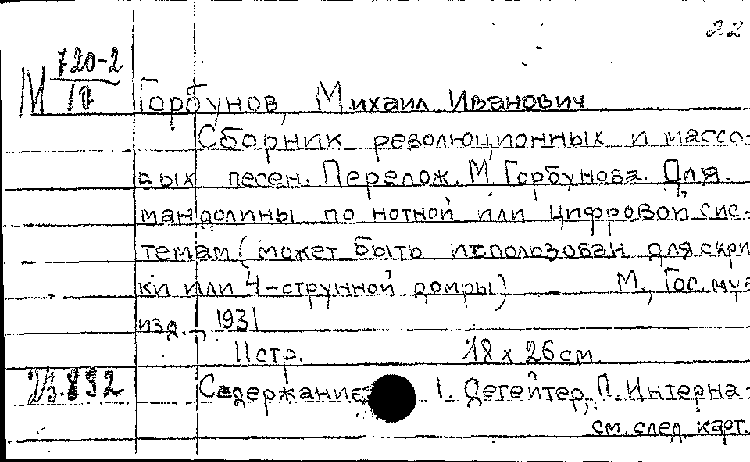 22
М 720-2
10
Горбунов, Михаил Иванович
Сборник революционных и массо-
вых песен. Перелож. М. Горбунова. Для
мандолины по нотной или цифровой сис-
темам (может быть использован для скрип
ки или 4-струнной домры) М., Гос. муз
изд., 1931
11 стр. 18 х 26 см.
Содержание 1. Дегейтер, П. Интерна-
см. след. карт.